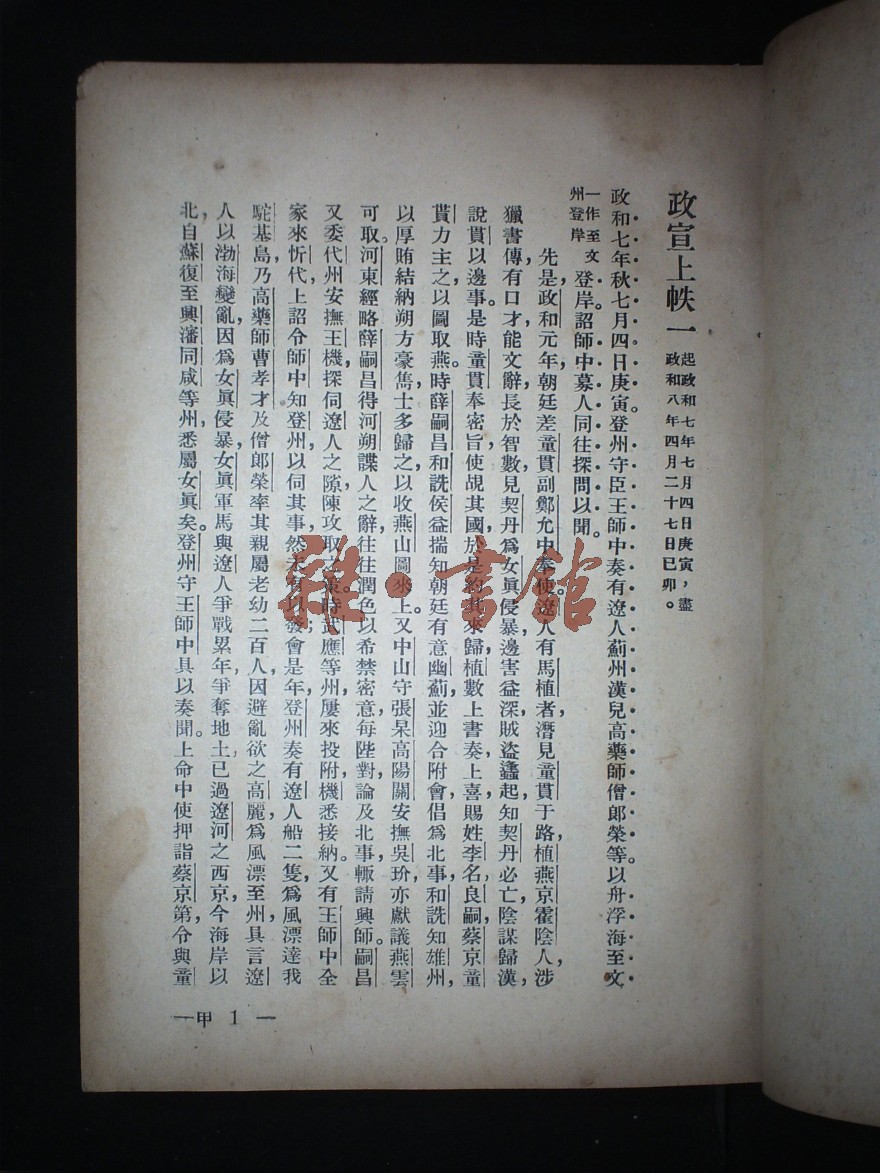 政宣上帙一 起政和七年七月四日庚寅,盡政和八年四月二十七日己卯。
政和七年秋七月四日庚寅登州守臣王師中奏有遼人薊州漢兒高藥師僧郎榮等。以舟浮海至文
一作至文州登岸 登岸。詔師中募人同往探問以聞。
先是政和元年,朝廷差童貫副鄭允中奉使遼人有馬植者,潛見童貫于路,植燕京霍陰人,涉
獵書傳,有口才,能文辭,長於智數,見契丹爲女眞侵暴,邊害益深,賊盜蠭起,知契丹必亡,陰謀歸漢,
說貫以邊事。是時童貫奉密旨使覘其國,於是約其來歸,植數上書奏,上喜,賜姓李,名良嗣,蔡京童
貫力主之,以圖取燕。時薛嗣昌和詵侯益揣知朝廷有意幽薊,並迎合附會,倡爲北事,和詵知雄州,
以厚賄結納朔方豪雋,士多歸之,以收燕山圖來上。又中山守張杲高陽關安撫吳玠亦獻議燕雲
可取。河東經略薛嗣昌得河朔諜人之辭,往往潤色以希禁密意,每陛對論及北事,輒請興師。嗣昌
又委代州安撫王機探伺遼人之隙,陳攻取之策。時武應等州屢來投附,機悉接納。又有王師中全
家來忻代,上詔令師中知登州,以伺其事,然未有以發;會是年,登州奏有遼人船二隻,爲風漂達我
駝基島,乃高藥師曹孝才及僧郎榮率其親屬老幼二百人,因避亂欲之高麗,爲風漂至州,具言遼
人以渤海變亂,因爲女眞侵暴,女眞軍馬與遼人爭戰累年,爭奪地土,已過遼河之西京,今海岸以
北,自蘇復至興瀋同咸等州,悉屬女眞矣。登州守王師中具以奏聞。上命中使押詣蔡京第,令與童
—甲 1 —
雜·書館